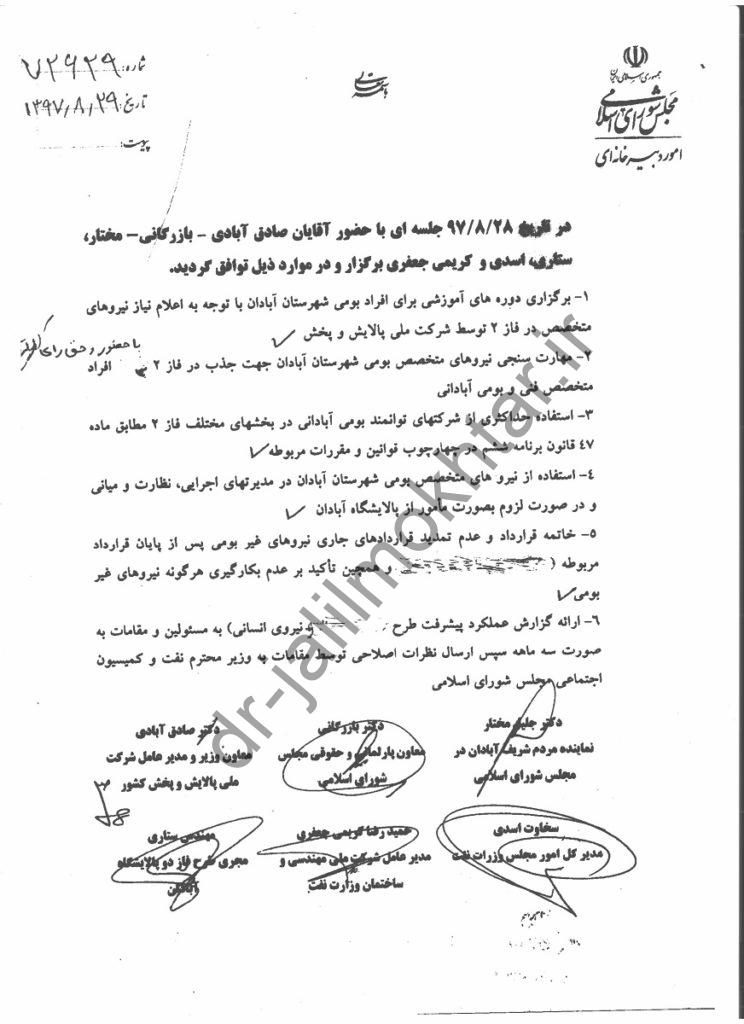 جمهوری اسلامی ایران
مجلس شورای اسلامی
امور دبیرخانه‌ای
بسمه تعالی
شماره: ۷۲۶۲۹
تاریخ: ۱۳۹۷/۸/۲۹
پیوست:
در تاریخ ۹۷/۸/۲۸ جلسه ای با حضور آقایان صادق آبادی – بازرگانی– مختار،
ستاری، اسدی و کریمی جعفری برگزار و در موارد ذیل توافق گردید.
۱– برگزاری دوره های آموزشی برای افراد بومی شهرستان آبادان با توجه به اعلام نیاز نیروهای
متخصص در فاز ۲ توسط شرکت ملی پالایش و پخش
با حضور و حق رای
۲– مهارت سنجی نیروهای متخصص بومی شهرستان آبادان جهت جذب در فاز ۲ افراد
متخصص فنی و بومی آبادانی
۳– استفاده حداکثری از شرکتهای توانمند بومی آبادانی در بخشهای مختلف فاز ۲ مطابق ماده
۴۷ قانون برنامه ششم در چهارچوب قوانین و مقررات مربوطه
۴– استفاده از نیرو های متخصص بومی شهرستان آبادان در مدیرتهای اجرایی، نظارت و میانی
و در صورت لزوم بصورت مأمور از پالایشگاه آبادان
۵– خاتمه قرارداد و عدم تمدید قراردادهای جاری نیروهای غیر بومی پس از پایان قرارداد
مربوطه ( و همچنین تأکید بر عدم بکارگیری هرگونه نیروهای غیر
بومی
۶– ارائه گزارش عملکرد پیشرفت طرح نیروی انسانی) به مسئولین و مقامات به
صورت سه ماهه سپس ارسال نظرات اصلاحی توسط مقامات به وزیر محترم نفت و کمیسیون
اجتماعی مجلس شورای اسلامی
دکتر جلیل مختار
نماینده مردم شریف آبادان در
مجلس شورای اسلامی
دکتر بازرگانی
معاون پارلمانی و حقوقی مجلس
شورای اسلامی
دکتر صادق آبادی
معاون وزیر و مدیر عامل شرکت
ملی پالایش و پخش کشور
سخاوت اسدی
مدیر کل امور مجلس وزرات نفت
حمید رضا کریمی جعفری
مدیر عامل شرکت ملی مهندسی و
ساختمان وزارت نفت
مهندس ستاری
مجری طرح فاز دو پالایشگاه
آبادان
dr-jalilmokhtar.ir